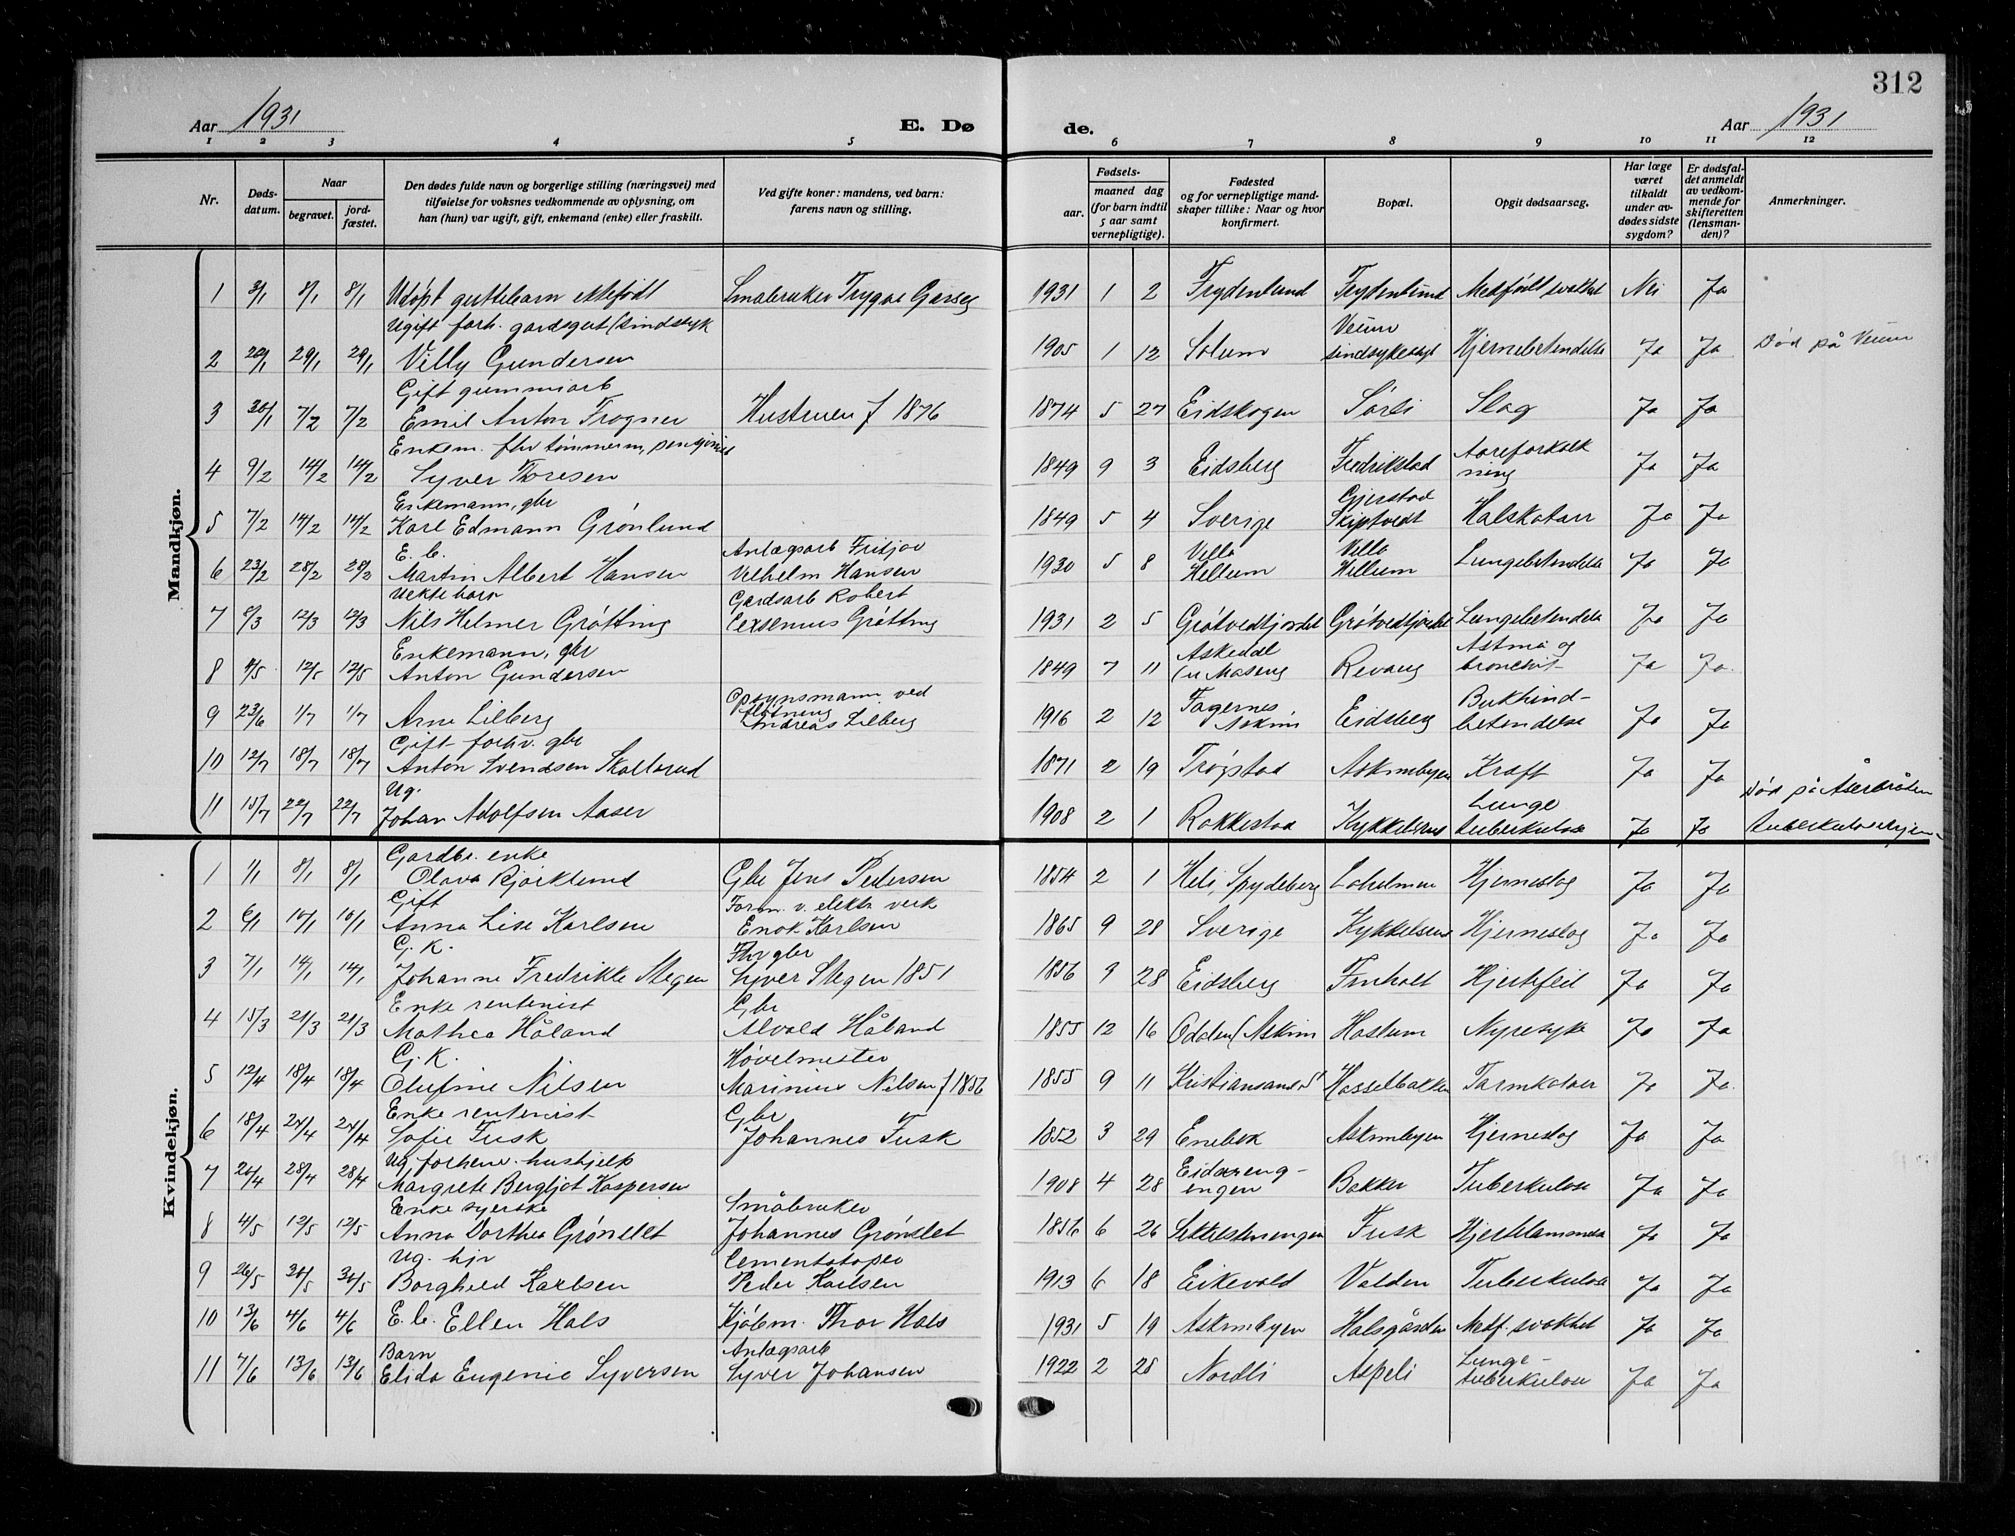 312
Aar 1931 E. Dø de. Aar 1931
1 2 3 4 5 6 7 8 9 10 11 12
Nr. Døds-datum. Naar begravet. jord-fæstet. Den dødes fulde navn og borgerlige stilling (næringsvei) med tilføielse for voksnes vedkommende av oplysning, om han (hun) var ugift, gift, enkemand (enke) eller fraskilt. Ved gifte koner: mandens, ved barn: farens navn og stilling. Fødsels- aar. maaned dag (for barn indtil 5 aar samt vernepligtige). Fødested og for vernepligtige mand-skaper tillike: Naar og hvor konfirmert. Bopæl. Opgit dødsaarsag. Har læge været tilkaldt under av-dødes sidste sygdom? Er dødsfal-det anmeldt av vedkom-mende for skifteretten (lensman-den)? Anmerkninger.
Mandkjøn.
1 3/1 8/1 8/1 Udøpt guttebarn ektefødt Småbruker Trygve 1931 1 2 Frydenlund Frydenlund Medfødt svakhet Nei Ja
Ugift forh. gardsgut (sindssyk Veum
2 22/1 29/1 29/1 Villy Gundersen 1905 1 12 Solum sindsykeasyl Hjernebetendelse Ja Ja Død på Veum
Gift gummiarb
3 30/1 7/2 7/2 Emil Anton Trogner Hustruen f 1876 1874 5 27 Eidskogen Sørli Slag Ja Ja
Enkem. fhv tømmerm, pensjonist
4 9/2 14/2 14/2 Syver Thoresen 1849 9 3 Eidsberg Fredrikstad Aareforkalk ning Ja Ja
Enkemann, gbr Gjerstad
5 7/2 14/2 14/2 Karl Edmann Grønlund 1849 5 4 Sverige Skiptvedt Halskatarr Ja Ja
E. b. Anlægsarb Fritjov Villa Villa
6 23/2 28/2 28/2 Martin Albert Hansen Vilhelm Hansen 1930 5 8 Hellum Hellum Lungebetendelse Ja Ja
Uekte barn Gardsarb Robert
7 8/3 12/3 12/3 Nils Helmer Grøtting Grøtting 1931 2 5 Grøtvedtjordet Grøtvedtjordet Lungebetendelse Ja Ja
Enkemann, gbr Askedal Astma og
8 12/5 12/5 Anton Gundersen 1849 7 11 Revaug bronchit Ja Ja
Opsynsmann ved fløtning Fagernes Bukhind-
9 23/6 1/7 1/7 Arne Lilberg Andreas Lilberg 1916 2 12 Askim Eidsberg betendelse Ja Ja
Gift forhv. gbr
10 12/7 18/7 18/7 Anton Svendsen Skallerud 1871 2 19 Trøgstad Askimbyen Kræft Ja Ja
Ug. Lunge Død på
11 15/7 22/7 22/7 Johan Adolfsen Aaser 1908 2 1 Rakkestad Kykkelsrud tuberkulose Ja Ja
Kvindekjøn.
Gardbr. enke
1 1/1 8/1 8/1 Olava Bjørklund Gbr Jens Pedersen 1854 2 1 Heli, Spydeberg Loholmen Hjerneslag Ja Ja
Gift Form. v. elektr verk
2 6/1 10/1 10/1 Anna Lise Karlsen Enok Karlsen 1865 9 28 Sverige Kykkelsrud Hjerneslag Ja Ja
G. K. Fhv gbr
3 7/1 14/1 14/1 Johanne Fredrikke Stegen Syver Stegen 1851 1856 9 28 Eidsberg Finholt Hjertefeil Ja Ja
Enke rentenist Gbr
4 15/3 21/3 21/3 Mathea Håland Alvald Håland 1855 12 16 Odden (Askim Haslum Nyresyke Ja Ja
G. K. Høvelmester
5 12/4 18/4 18/4 Olufine Nilsen Marinius Nilsen f 1856 1855 9 11 Kristiansand S Hasselbakken Tarmkatarr Ja Ja
Enke rentenist Gbr
6 18/4 24/4 24/4 Sofie Fusk Johannes Fusk 1852 3 29 Enebak Askimbyen Hjerneslag Ja Ja
Ug forhenv. hushjelp
7 20/4 28/4 28/4 Margrete Bergljot Kaspersen 1908 4 28 engen Bakker Tuberkulose Ja Ja
Enke syerske Småbruker
8 4/5 12/5 12/5 Anna Dorthea Grønslet Johannes Grønslet 1856 6 26 Fusk Hjertelammelse Ja Ja
Ug. hjv Cementstøper
9 26/5 30/5 30/5 Borghild Karlsen Peder Karlsen 1913 6 18 Eikevold Volden Tuberkulose Ja Ja
10 13/6 4/6 4/6 E. b. Ellen Hals Kjøbm. Thor Hals 1931 5 19 Askimbyen Halsgården Medf. svakhet Ja Ja
Barn Anlægsarb Lunge-
11 7/6 13/6 13/6 Elida Eugenie Syversen Syver Johansen 1922 2 28 Nordli Aspeli tuberkulose Ja Ja